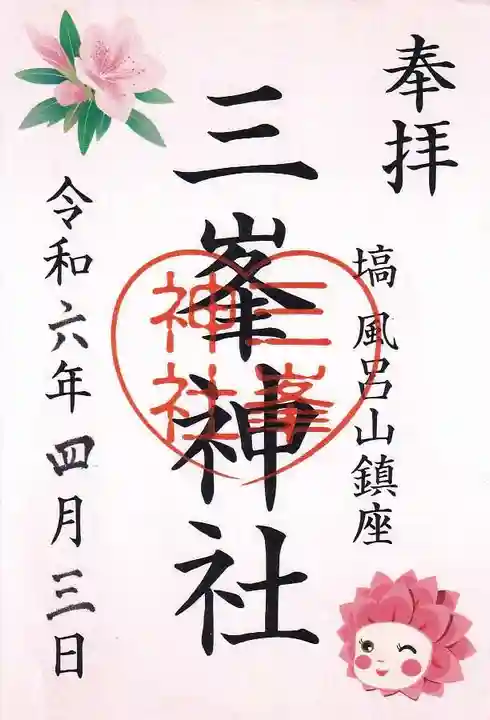 奉拝
塙 風呂山鎮座
三峯神社
三峯
神社
令和六年四月三日